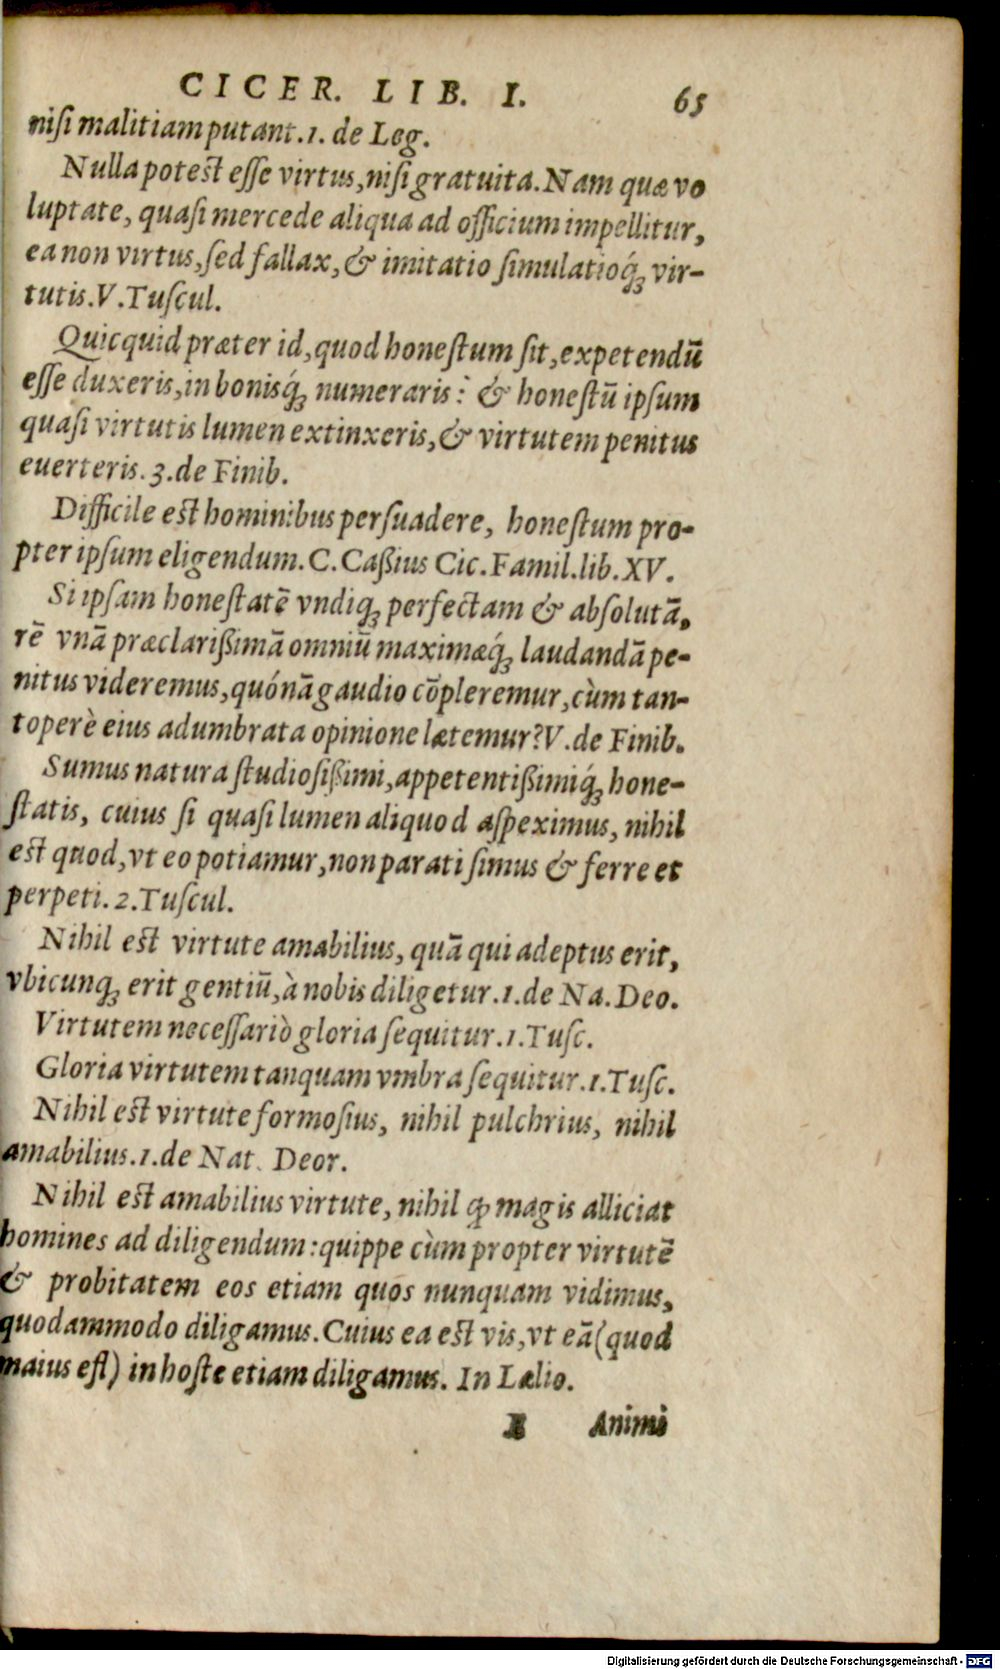 CICER. LIB. I. 65
niſi malitiam putant. 1. de Leg.
Nulla poteſt eſſe virtus, niſi gratuita. Nam quæ vo
luptate, quaſi mercede aliqua ad officium impellitur,
ea non virtus, ſed fallax, & imitatio ſimulatioq́ꝫ vir-
tutis. V. Tuſcul.
Quicquid præter id, quod honeſtum ſit, expetendũ
eſſe duxeris, in bonisq́ꝫ numeraris: & honeſtũ ipſum
quaſi virtutis lumen extinxeris, & virtutem penitus
euerteris. 3. de Finib.
Difficile eſt hominibus perſuadere, honeſtum pro-
pter ipſum eligendum. C. Caßius Cic. Famil. lib. XV.
Si ipſam honeſtatẽ vndiqꝫ perfectam & abſolutã,
rẽ vnã præclarißimã omniũ maximæq́ꝫ laudandã pe-
nitus videremus, quónã gaudio cõpleremur, cùm tan-
toperè eius adumbrata opinione lætemur? V. de Finib.
Sumus natura ſtudioſißimi, appetentißimiq́ꝫ hone-
ſtatis, cuius ſi quaſi lumen aliquod aſpeximus, nihil
eſt quod, vt eo potiamur, non parati ſimus & ferre et
perpeti. 2. Tuſcul.
Nihil eſt virtute amabilius, quã qui adeptus erit,
vbicunqꝫ erit gentiũ, à nobis diligetur. 1. de Na. Deo.
Virtutem neceſſariò gloria ſequitur. 1. Tuſc.
Gloria virtutem tanquam vmbra ſequitur. 1. Tuſc.
Nihil eſt virtute formoſius, nihil pulchrius, nihil
amabilius. 1. de Nat. Deor.
Nihil eſt amabilius virtute, nihil ꝙ magis alliciat
homines ad diligendum: quippe cùm propter virtutẽ
& probitatem eos etiam quos nunquam vidimus,
quodammodo diligamus. Cuius ea eſt vis, vt eã (quod
maius eſt) in hoſte etiam diligamus. In Lælio.
E Animi
Digitalisierung gefördert durch die Deutsche Forschungsgemeinschaft - DFG